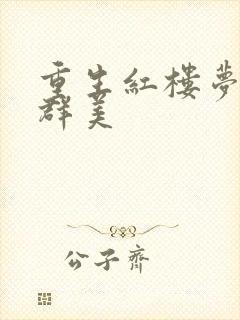 重生紅樓夢
群美
公子齊